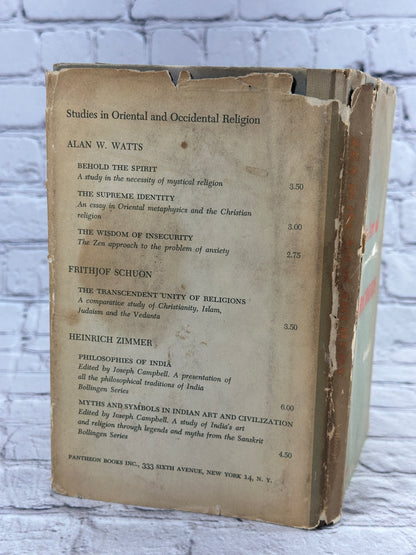 Studies in Oriental and Occidental Religion
ALAN W. WATTS
BEHOLD THE SPIRIT
A study in the necessity of mystical religion 3.50
THE SUPREME IDENTITY
An essay in Oriental metaphysics and the Christian
religion 3.00
THE WISDOM OF INSECURITY
The Zen approach to the problem of anxiety 2.75
FRITHJOF SCHUON
THE TRANSCENDENT UNITY OF RELIGIONS
A comparative study of Christianity, Islam,
Judaism and the Vedanta 3.50
HEINRICH ZIMMER
PHILOSOPHIES OF INDIA
Edited by Joseph Campbell. A presentation of
all the philosophical traditions of India
Bollingen Series 6.00
MYTHS AND SYMBOLS IN INDIAN ART AND CIVILIZATION
Edited by Joseph Campbell. A study of India's art
and religion through legends and myths from the Sanskrit
Bollingen Series 4.50
PANTHEON BOOKS INC., 333 SIXTH AVENUE, NEW YORK 14, N. Y.